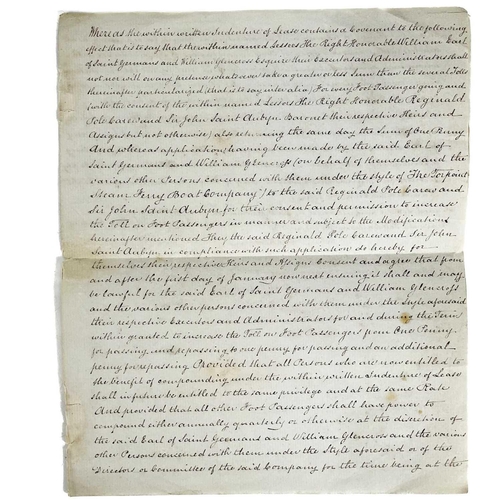 Whereas the within written Indenture of Lease contains a Covenant to the following
effect that is to say that the within named Lessees The Right Honorable William Earl
of Saint Germans and William Glencross Esquire their Executors and Administrators shall
not nor will on any pretence whatsoever take a greater or less Sum than the several Tolls
hereinafter particularized (that is to say inter alia) For every Foot Passenger going and
(with the consent of the within named Lessors The Right Honorable Reginald
Pole Carew and Sir John Saint Aubyn Baronet their respective Heirs and
Assigns but not otherwise) also returning the same day the Sum of One Penny
And whereas application having been made by the said Earl of
Saint Germans and William Glencross (on behalf of themselves and the
various other Persons concerned with them under the style of The Torpoint
Steam Ferry Boat Company) to the said Reginald Pole Carew and
Sir John Saint Aubyn for their consent and permission to increase
the Toll on Foot Passengers in manner and subject to the Modifications
hereinafter mentioned They the said Reginald Pole Carew and Sir John
Saint Aubyn in compliance with such application do hereby for
themselves their respective Heirs and Assigns Consent and agree that from
and after the first day of January now next ensuing it shall and may
be lawful for the said Earl of Saint Germans and William Glencross
and the various other persons concerned with them under the Style aforesaid
their respective Executors and Administrators for and during the Term
within granted to increase the Toll on Foot Passengers from One Penny
for passing and repassing to one penny for passing and an additional
penny for repassing Provided that all Persons who are now entitled to
the benefit of compounding under the within written Indenture of Lease
shall in future be entitled to the same privilege and at the same Rate
And provided that all other Foot Passengers shall have power to
compound either annually quarterly or otherwise at the discretion of
the said Earl of Saint Germans and William Glencross and the various
other Persons concerned with them under the Style aforesaid or of the
Directors or Committee of the said Company for the time being at the